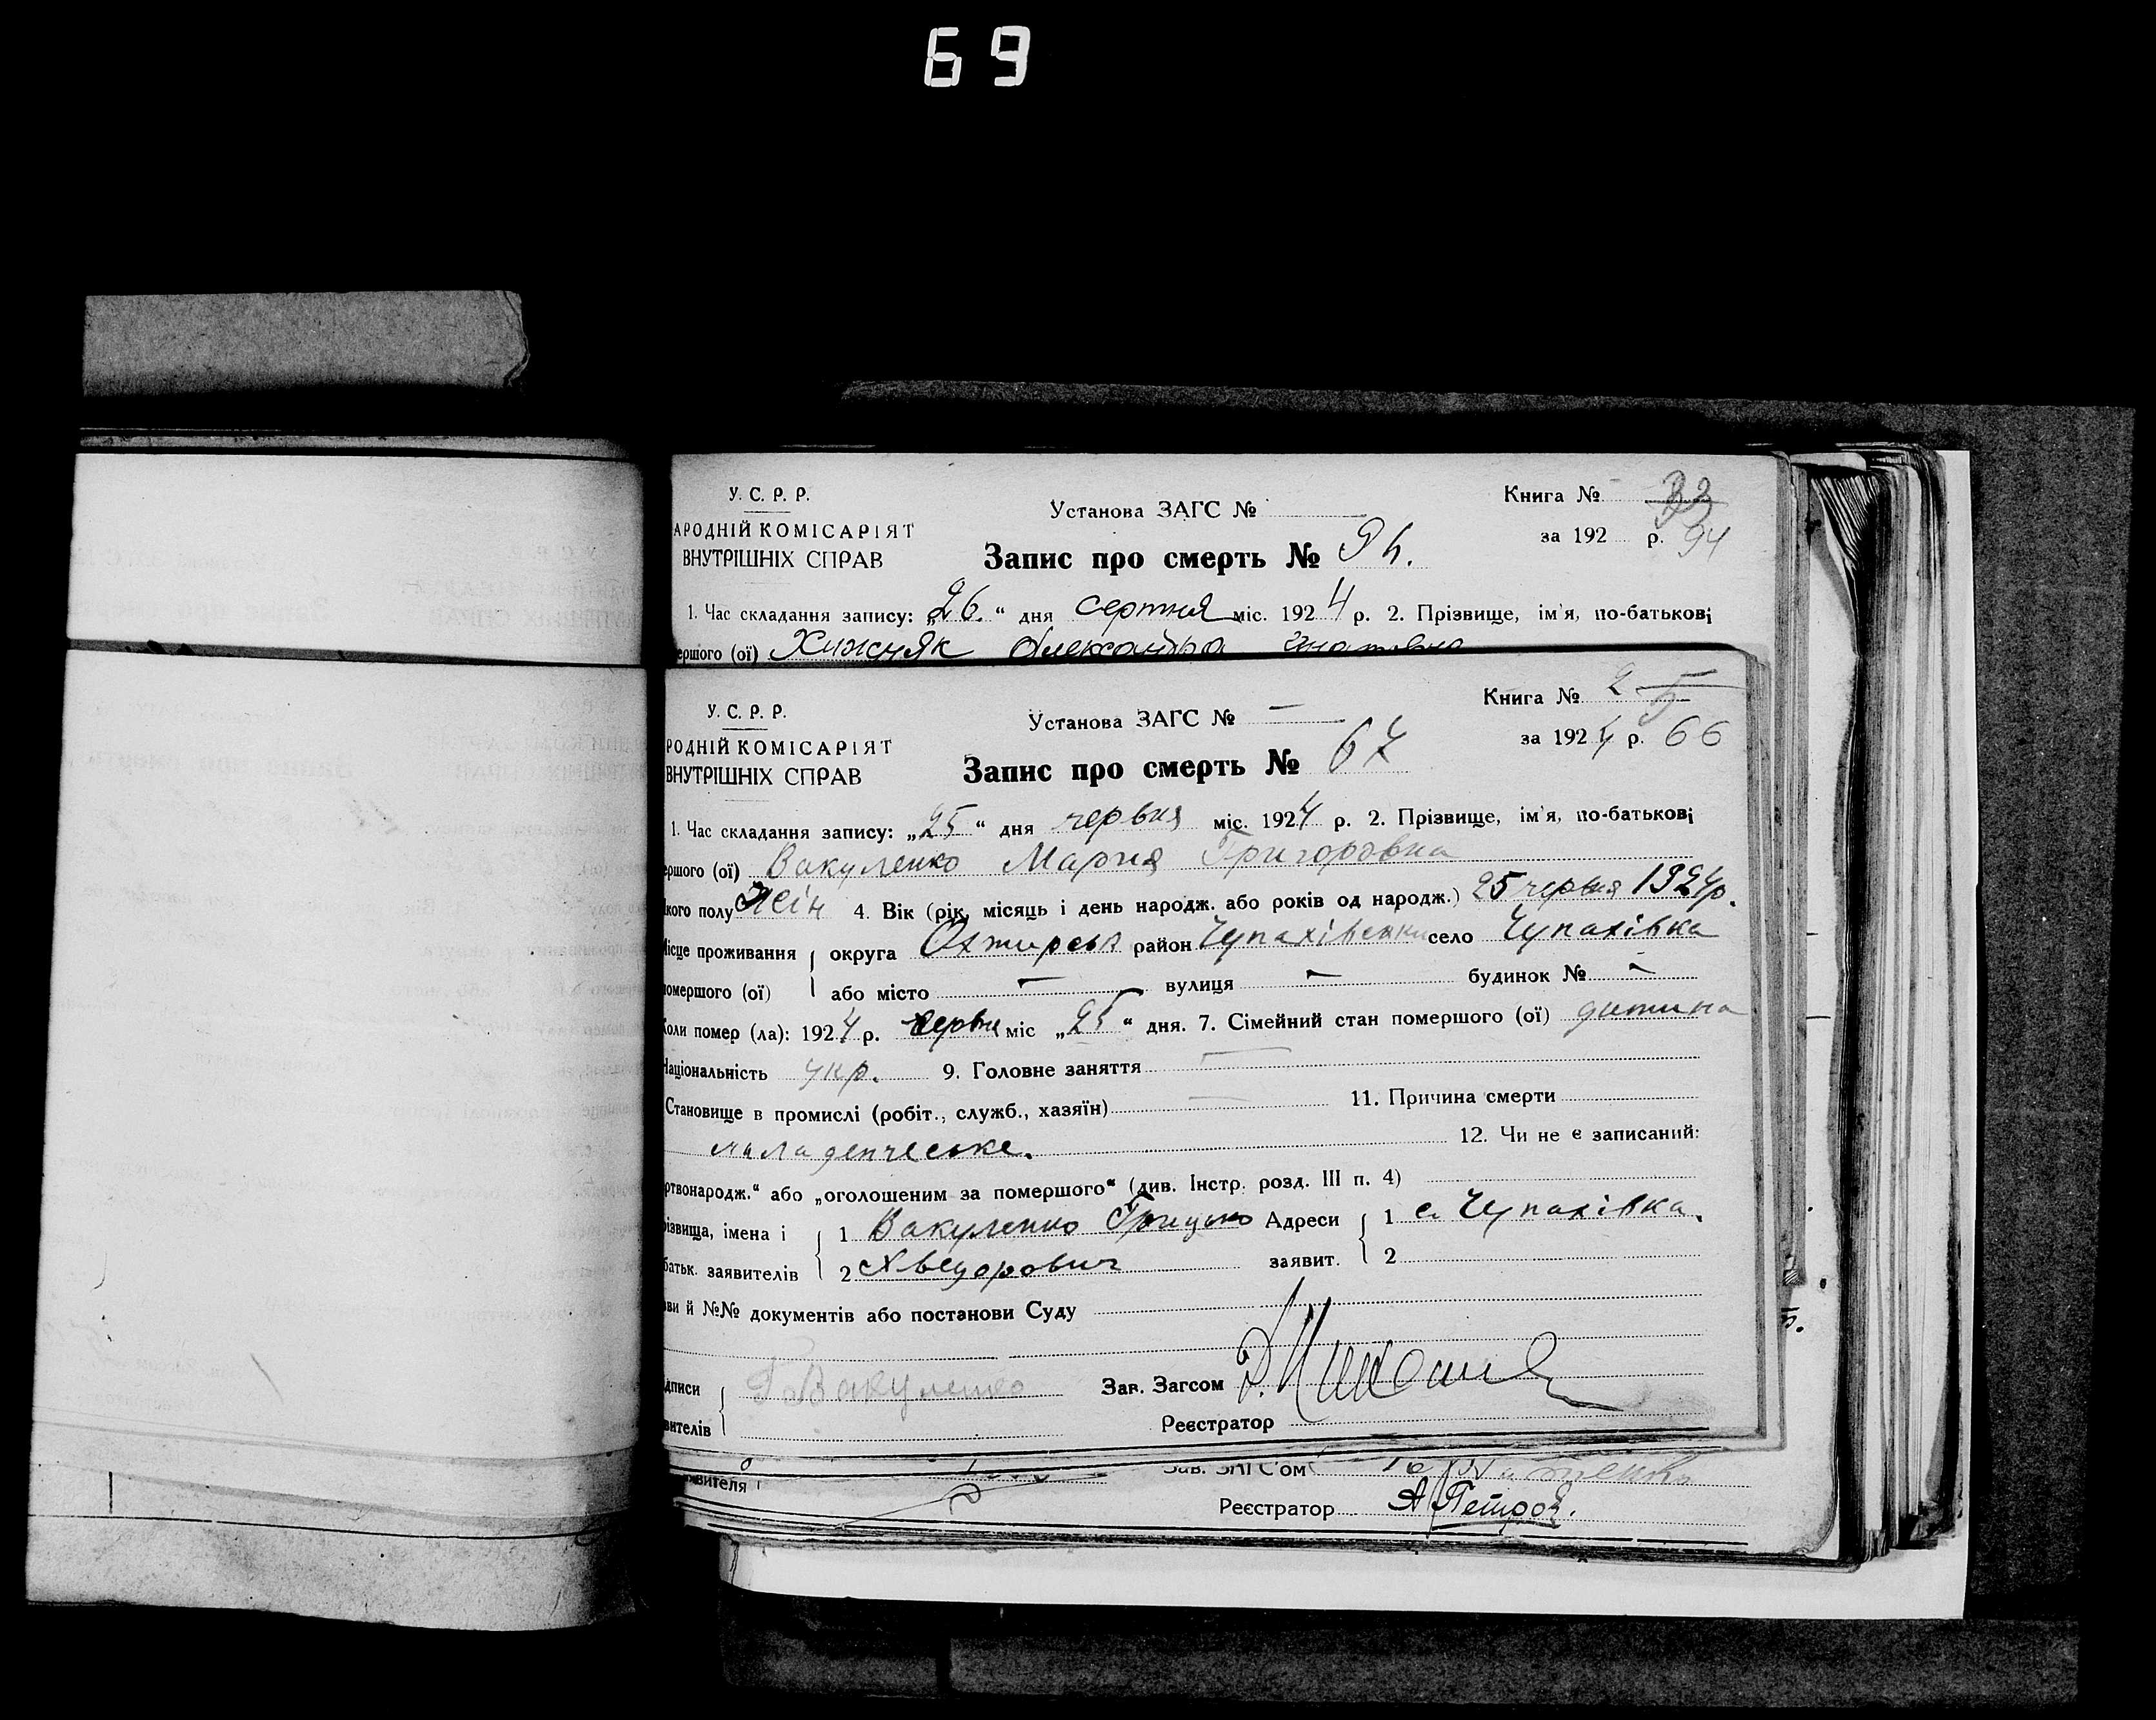 69
У. С. Р. Р.
АРОДНІЙ КОМІСАРІЯТ
ВНУТРІШНІХ СПРАВ
Установа ЗАГС №
Книга №
за 192 р. 94
Запис про смерть №
1. Час складання запису: „26.“ дня серпня міс. 1924 р. 2. Прізвище, ім'я, по-батькові
ершого (ої) Хижняк Олександра
У. С. Р. Р.
РОДНІЙ КОМІСАРІЯТ
ВНУТРІШНІХ СПРАВ
Установа ЗАГС № —
Книга № 2
за 1924 р. 66
Запис про смерть № 67
1. Час складання запису: „25“ дня червня міс. 1924 р. 2. Прізвище, ім'я, по-батькові
ершого (ої) Вакуленко Мария Григоровна
кого полу Жін 4. Вік (рік, місяць і день народж. або років од народж.) 25 червня 1924р.
ісце проживання округа Охтирськ район Чупахівськи село Чупахівка
омершого (ої) або місто — вулиця — будинок № —
Коли помер (ла): 1924 р. червня міс „25“ дня. 7. Сімейний стан помершого (ої) дитина
Національність укр. 9. Головне заняття —
Становище в промислі (робіт., служб., хазяїн) — 11. Причина смерти
младенческе. 12. Чи не є записаний:
ртвонародж.“ або „оголошеним за помершого“ (див. Інстр. розд. III п. 4)
різвища, імена і 1 Вакуленко Грицько Адреси 1 с. Чупахівка.
батьк. заявителів 2 Хведорович заявит. 2
ви й №№ документів або постанови Суду
дписи Г. Вакуленко Зав. Загсом
вителів Реєстратор
явителя Зав. ЗАГС'ом
Реєстратор А Петров.